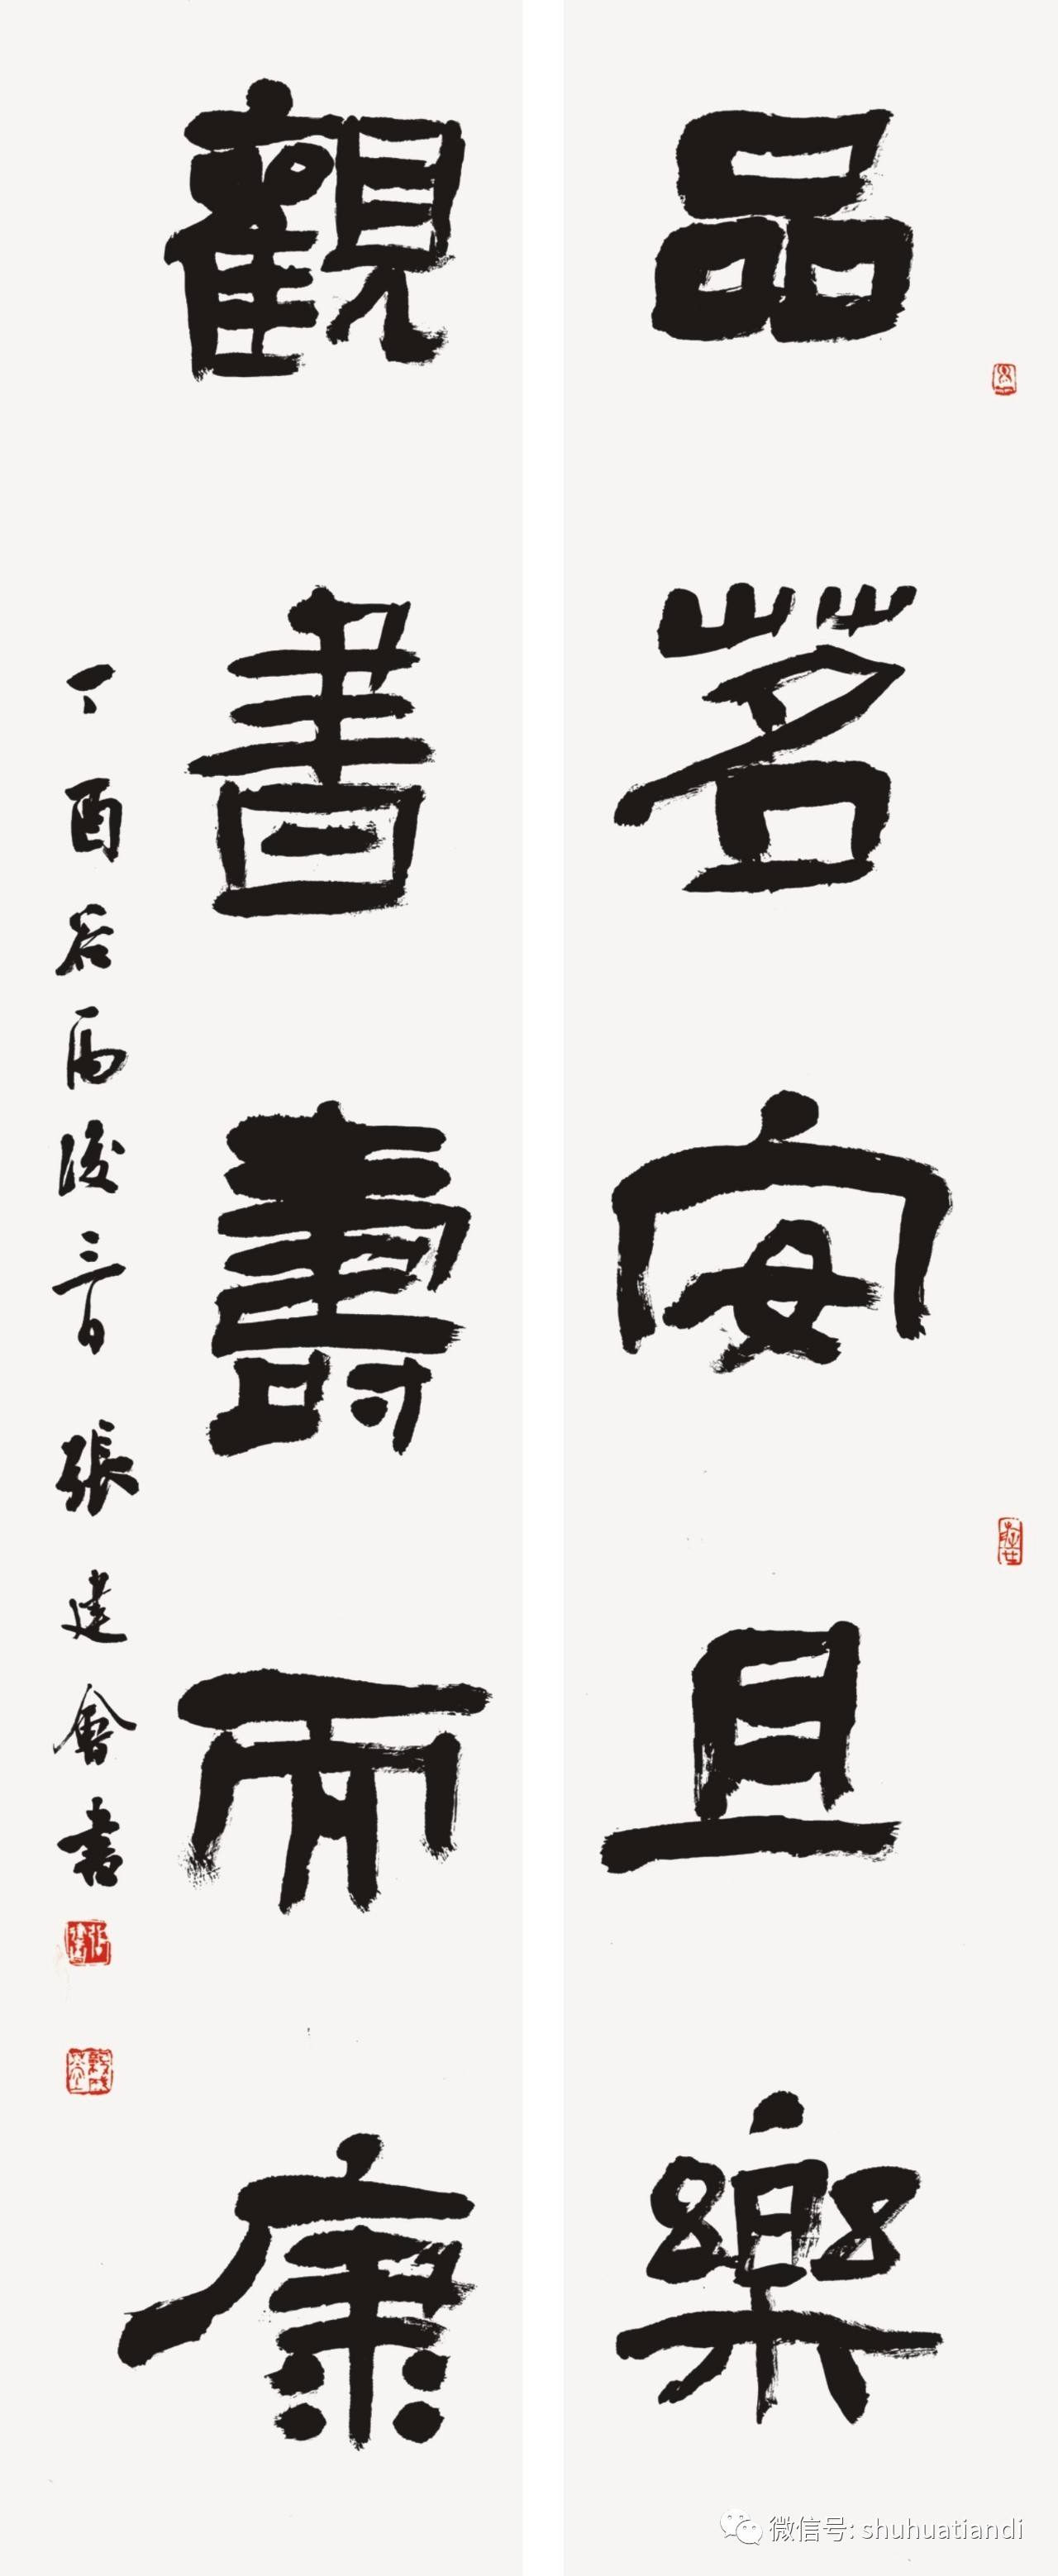 品茗安且樂
觀書壽而康
丁酉谷雨後三日張建會書
微信号: shuhuatiandi